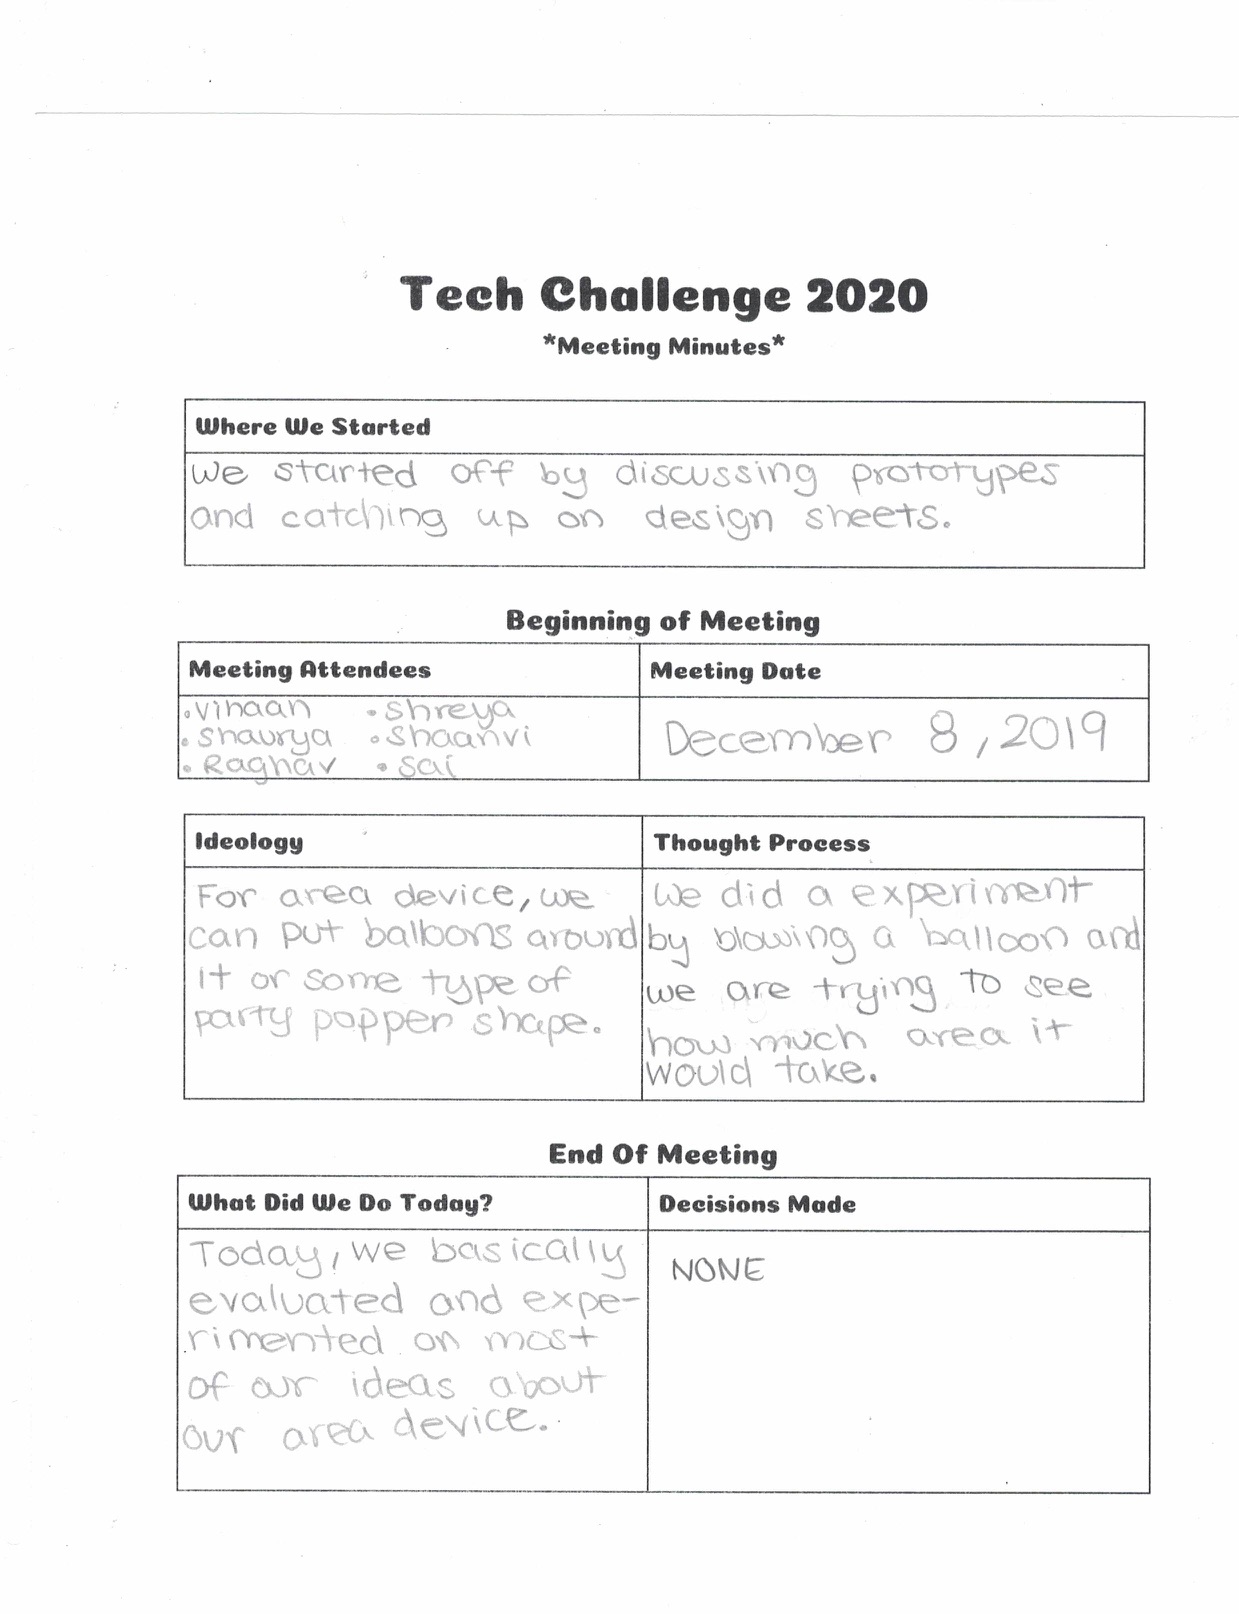 Tech Challenge 2020
*Meeting Minutes*
Where We Started
We started off by discussing prototypes
and catching up on design sheets.
Beginning of Meeting
Meeting Attendees
Meeting Date
•Vihaan •Shreya
•Shaurya •Shaanvi
•Raghav •Sai
December 8, 2019
Ideology
Thought Process
For area device, we
can put balloons around
it or some type of
party popper shape.
We did a experiment
by blowing a balloon and
we are trying to see
how much area it
would take.
End Of Meeting
What Did We Do Today?
Decisions Made
Today, we basically
evaluated and expe-
rimented on most
of our ideas about
our area device.
NONE